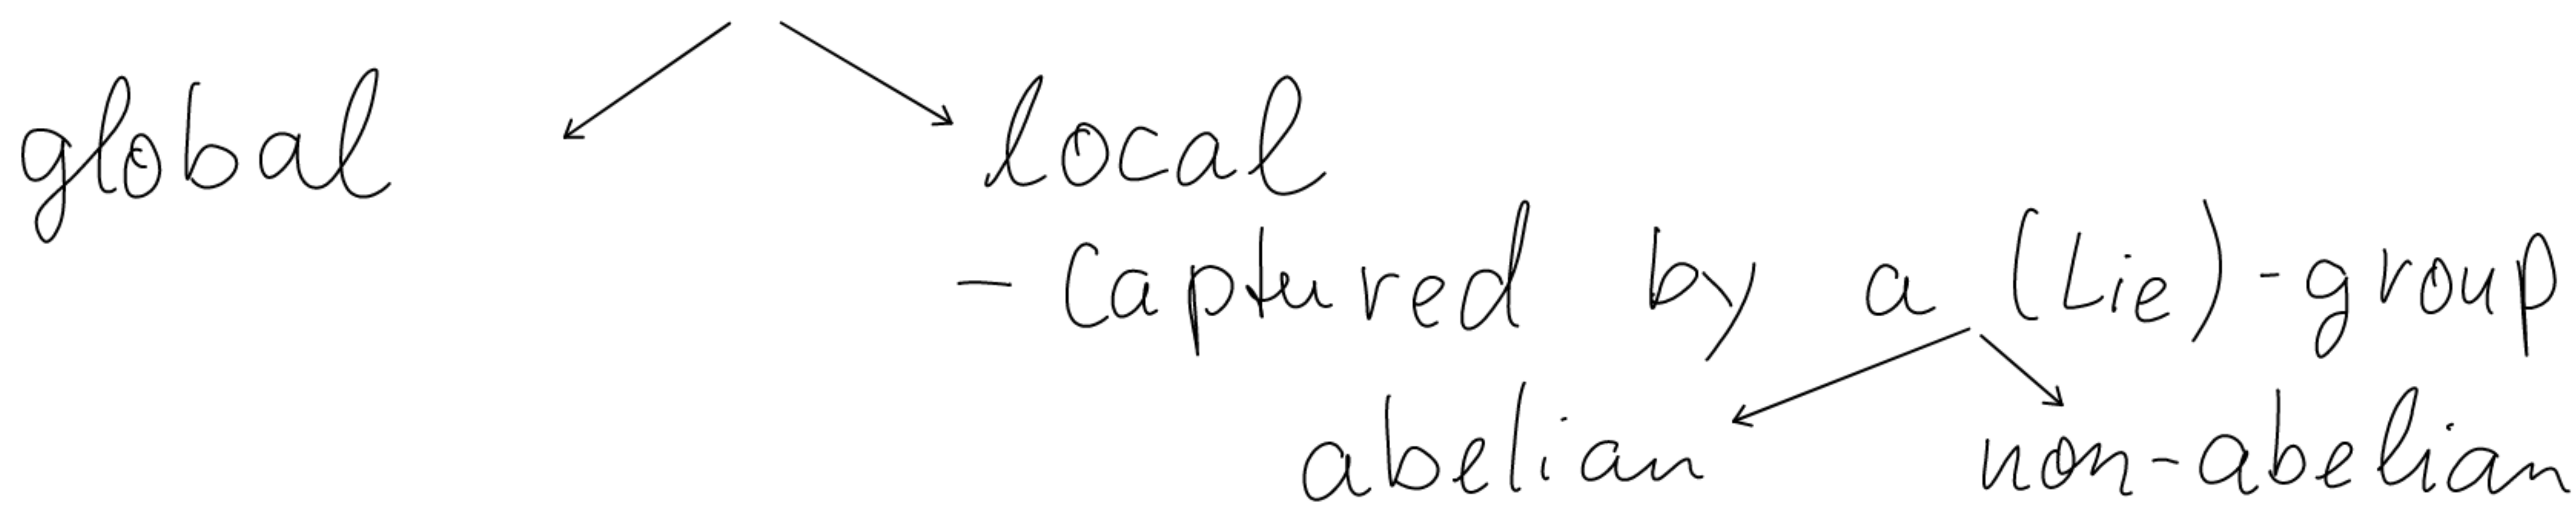 global local
- Captured by a (Lie)-group
abelian non-abelian